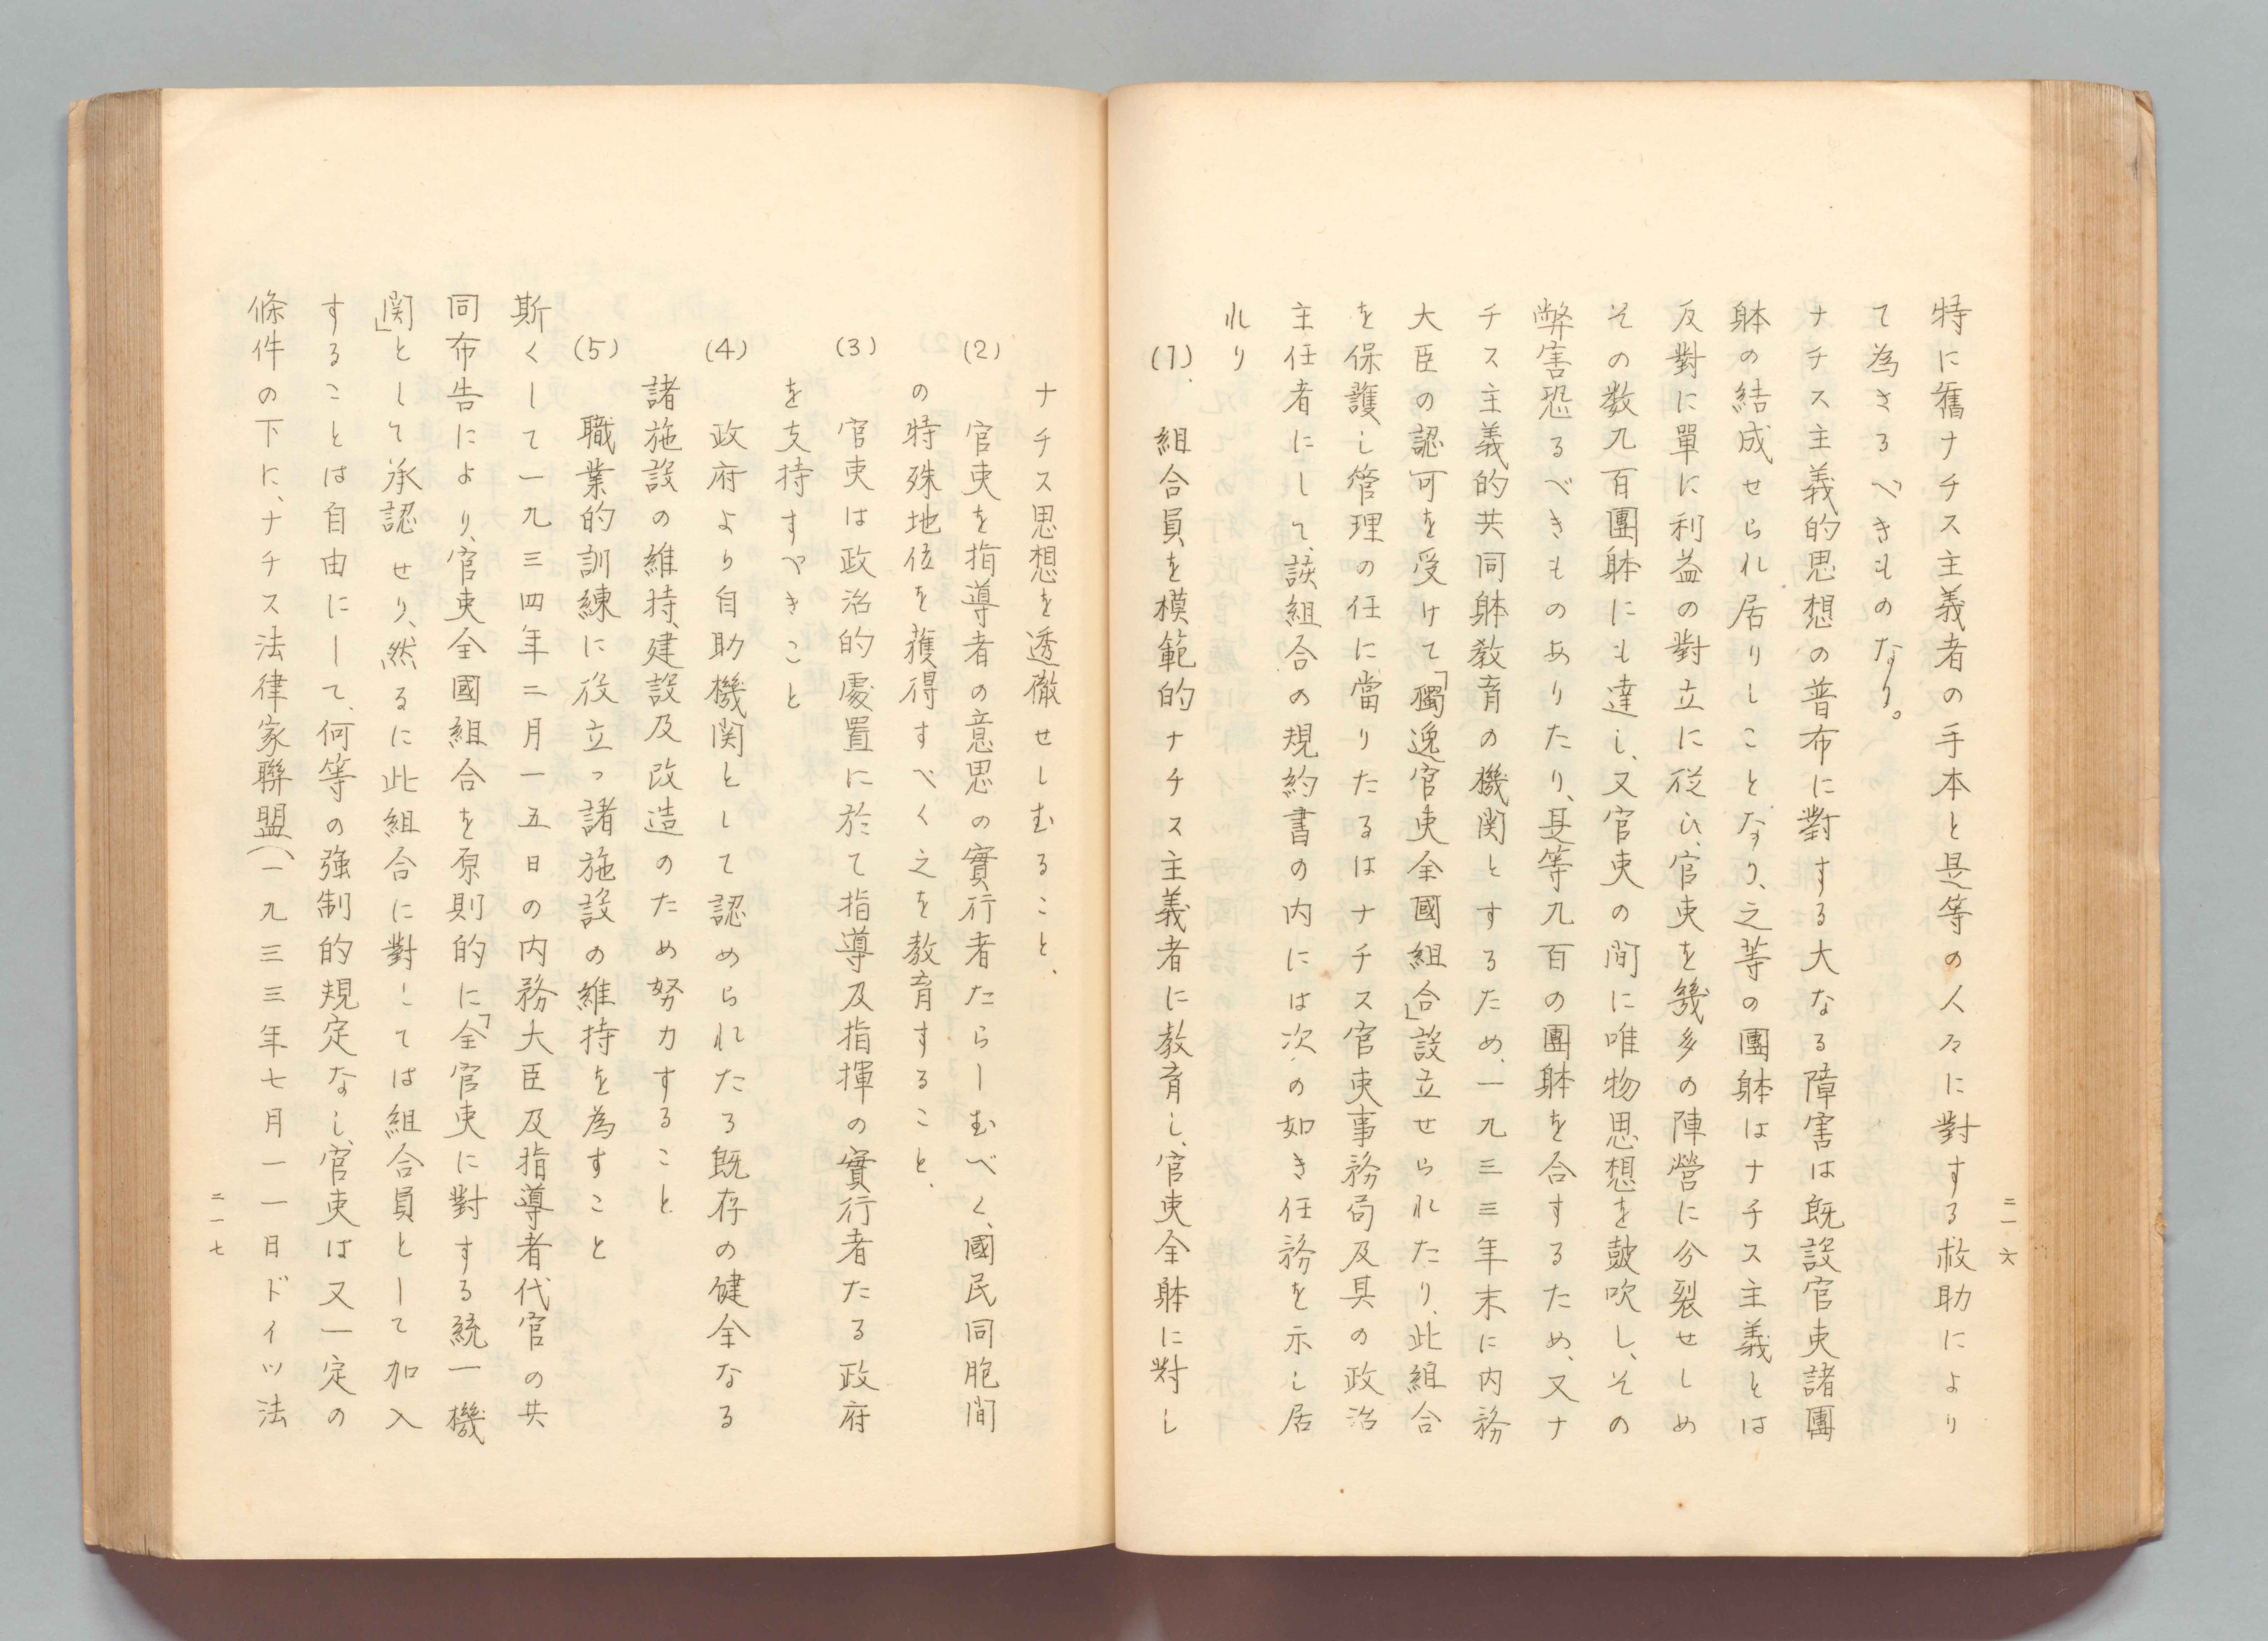 二一六
特に舊ナチス主義者の手本と是等の人々に對する救助により
て為さるべきものなり。
ナチス主義的思想の普布に對する大なる障害は既設官吏諸團
躰の結成せられ居りしことなり、之等の團躰はナチス主義とは
反對に單に利益の對立に從ひ、官吏を幾多の陣營に分裂せしめ
その数九百團躰にも達し、又官吏の間に唯物思想を皷吹し、その
弊害恐るべきものありたり、是等九百の團躰を合するため、又ナ
チス主義的共同躰敎育の機関とするため、一九三三年末に内務
大臣の認可を受けて「獨逸官吏全國組合」設立せられたり、此組合
を保護し管理の任に當りたるはナチス官吏事務局及其の政治
主任者にして、該組合の規約書の内には次の如き任務を示し居
れり
(1). 組合員を模範的ナチス主義者に教育し、官吏全躰に對し
ナチス思想を透徹せしむること、
(2) 官吏を指導者の意思の實行者たらしむべく、國民同胞間
の特殊地位を獲得すべく之を教育すること、
(3) 官吏は政治的處置に於て指導及指揮の實行者たる政府
を支持すべきこと
(4) 政府より自助機関として認められたる既存の健全なる
諸施設の維持、建設及改造のため努力すること
(5) 職業的訓練に役立つ諸施設の維持を為すこと
斯くして一九三四年二月一五日の内務大臣及指導者代官の共
同布告により、官吏全國組合を原則的に「全官吏に對する統一機
関」として承認せり、然るに此組合に對しては組合員として加入
することは自由にして、何等の強制的規定なし、官吏は又一定の
條件の下に、ナチス法律家聯盟（一九三三年七月一一日ドイツ法
二一七